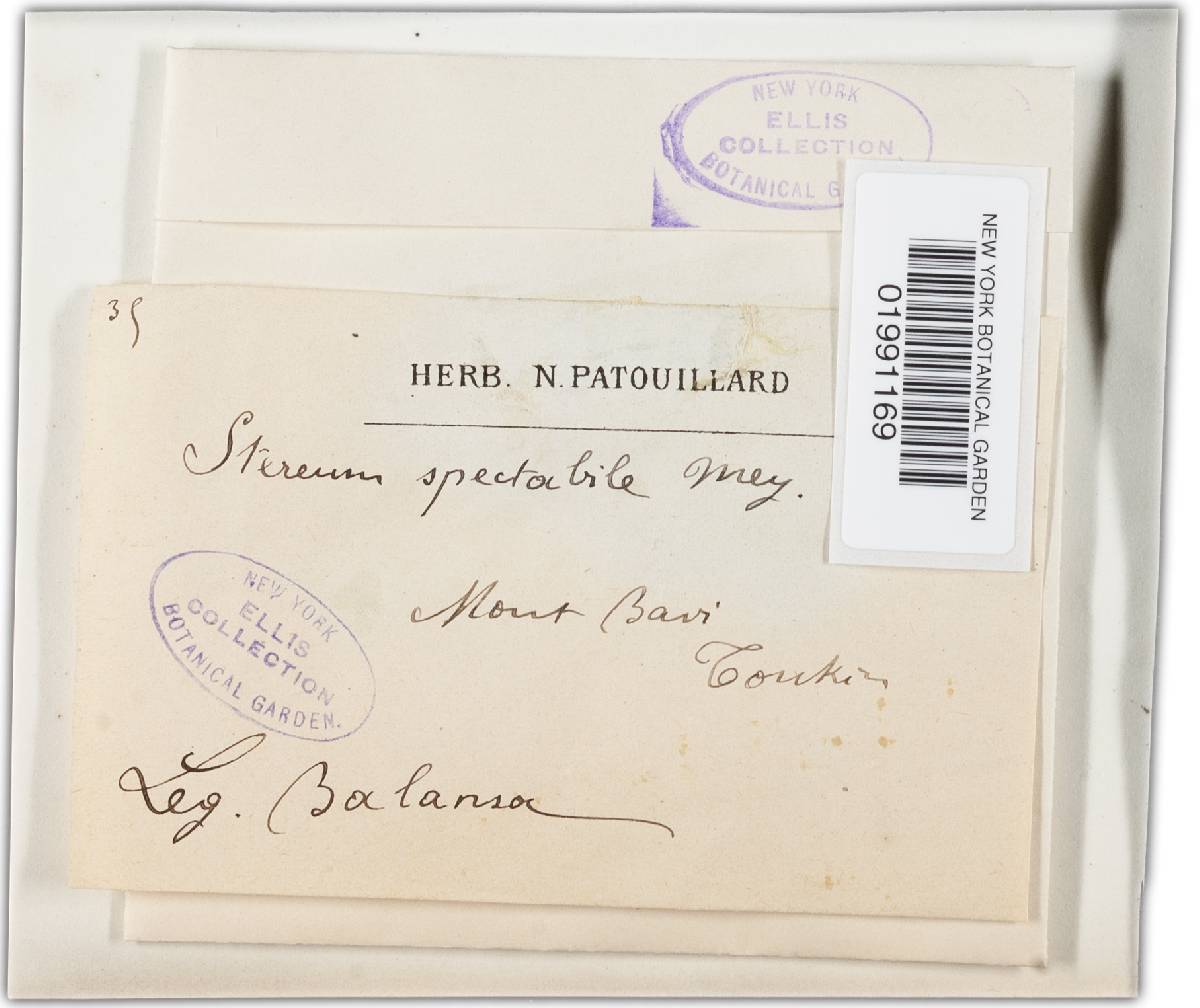 NEW YORK
ELLIS
COLLECTION
BOTANICAL G
NEW YORK BOTANICAL GARDEN
01991169
35
HERB. N. PATOUILLARD
Stereum spectabile Mey.
Mont Bavi
Tonkin
NEW YORK
ELLIS
COLLECTION
BOTANICAL GARDEN.
Leg. Balansa